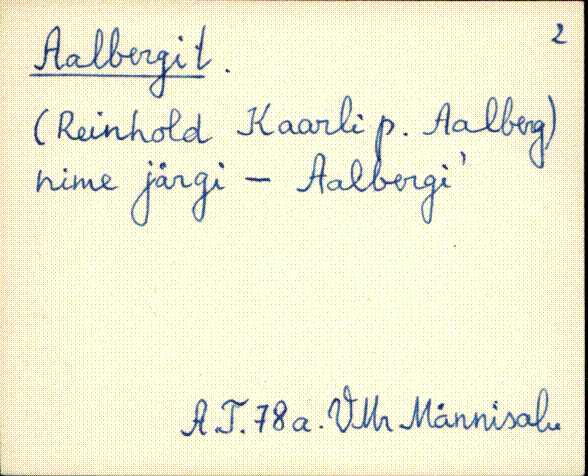 2
Aalbergit.
(Reinhold Kaarli p. Aalberg)
nime järgi – Aalbergi'
A.T. 78 a. Männisalu